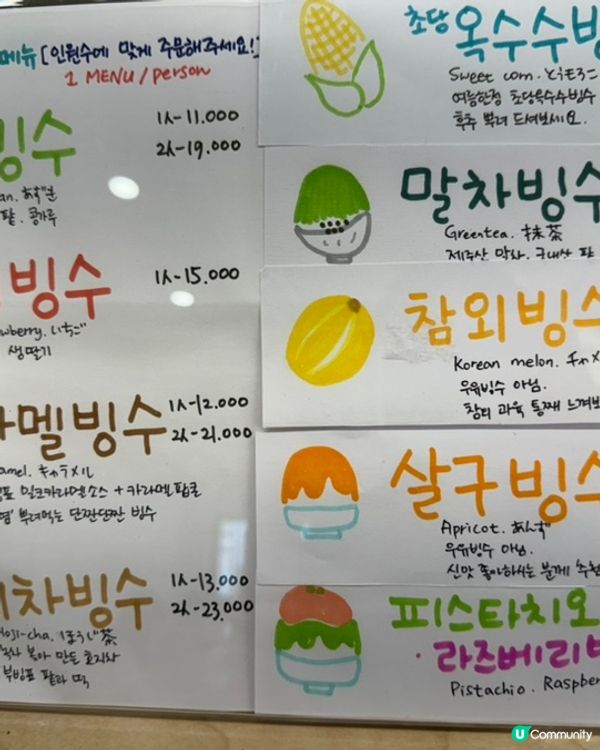 메뉴 [인원수에 맞게 주문해주세요!]
1 MENU / person
빙수
1人-11.000
2人-19.000
팥. 콩가루
빙수
1人-15.000
いちご
생딸기
멜빙수
1人-12.000
2人-21.000
キャラメル
밀크카라멜소스 + 카라멜팝콘
뿌려먹는 단짠단짠 빙수
차빙수
1人-13.000
2人-23.000
Hoji-cha. ほうじ茶
볶아 만든 호지차
팥과 떡
초당 옥수수빙
Sweet corn. とうもろこ
여름한정 초당옥수수빙수
후추 뿌려 드셔보세요.
말차빙수
Greentea. 抹茶
제주산 말차. 국내산 팥
참외빙수
Korean melon. チャメ
우유빙수 아님.
참외 과육 통째 느껴보
살구빙수
Apricot. あんず
우유빙수 아님.
신맛 좋아하시는 분께 추천
피스타치오
·라즈베리
Pistachio. Raspber
U Community